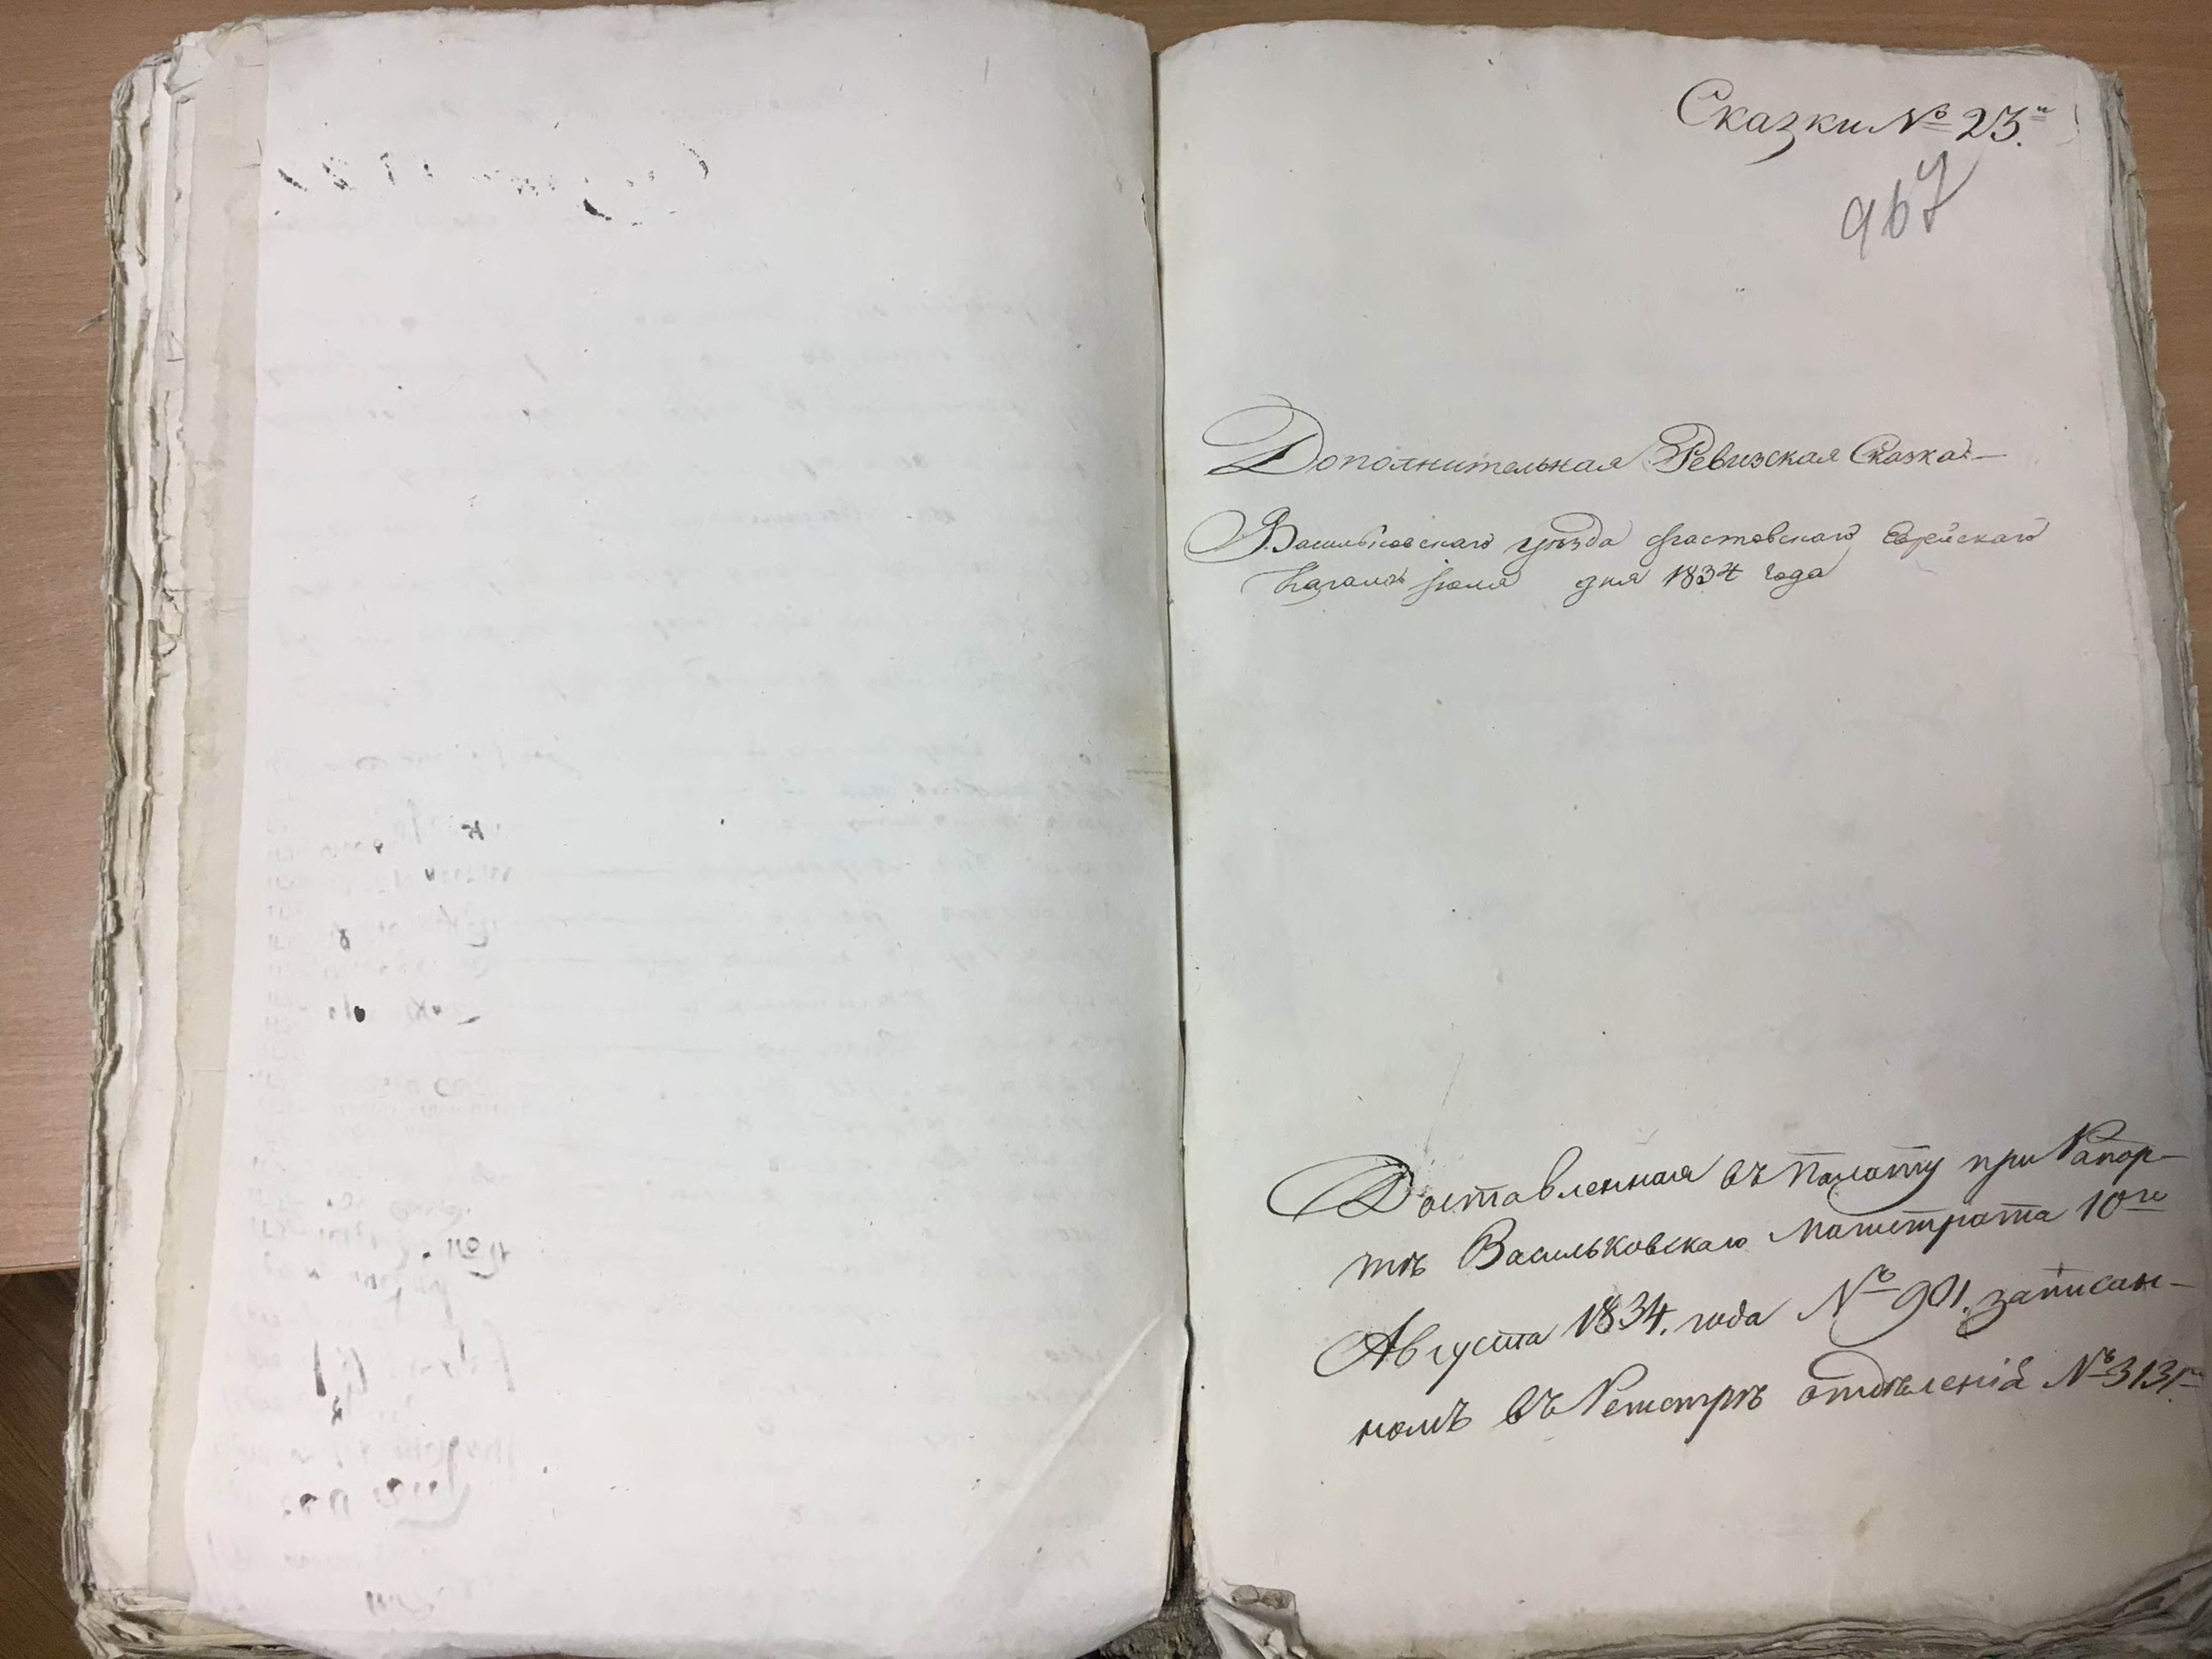 Сказки № 23.й
967
Дополнительная Ревизская Сказка
Васильковского уѣзда Фастовского Еврейского
Кагала Июля дня 1834 года
Доставленная въ Палату при Рапор-
тѣ Васильковского Магистрата 10го
Августа 1834. года № 901. записан-
номъ въ Регистрѣ отдѣленій № 3131